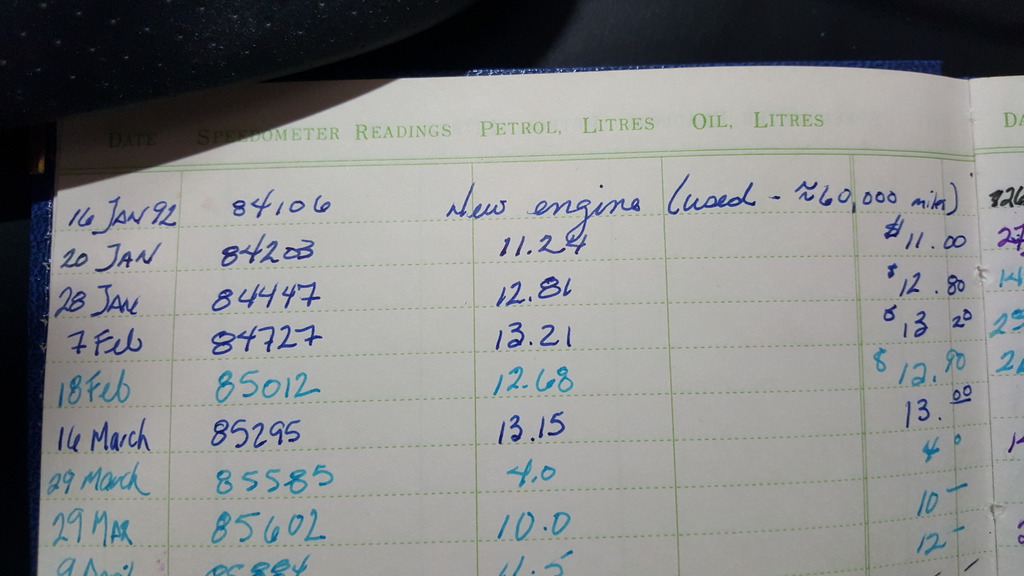 DATE SPEEDOMETER READINGS PETROL, LITRES OIL, LITRES
16 JAN 92 84106 New engine (used - ≈60,000 miles)
20 JAN 84203 11.24 $11.00
28 JAN 84447 12.81 $12.80
7 Feb 84727 13.21 $13 20
18 Feb 85012 12.68 $12.90
16 March 85295 13.15 13.00
29 March 85585 4.0 4 0
29 MAR 85602 10.0 10 –
9 April 11.5 12 –